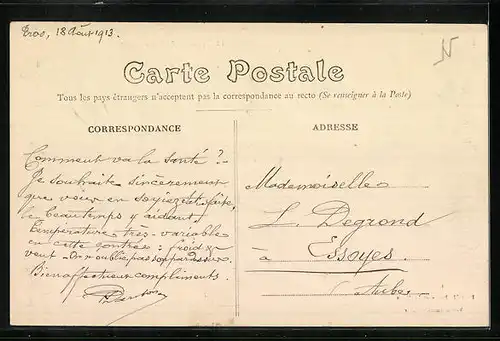 18 Août 1913.
Carte Postale
Tous les pays étrangers n'acceptent pas la correspondance au recto (Se renseigner à la Poste)
CORRESPONDANCE
Comment va la santé ? -
Je souhaite sincèrement
que vous en soyiez
le beau temps y aidant.
température très-variable
en cette contrée: froid &
vent
Bien affectueux compliments.
ADRESSE
Mademoiselle
L. Degrond
à Essoyes.
Aube